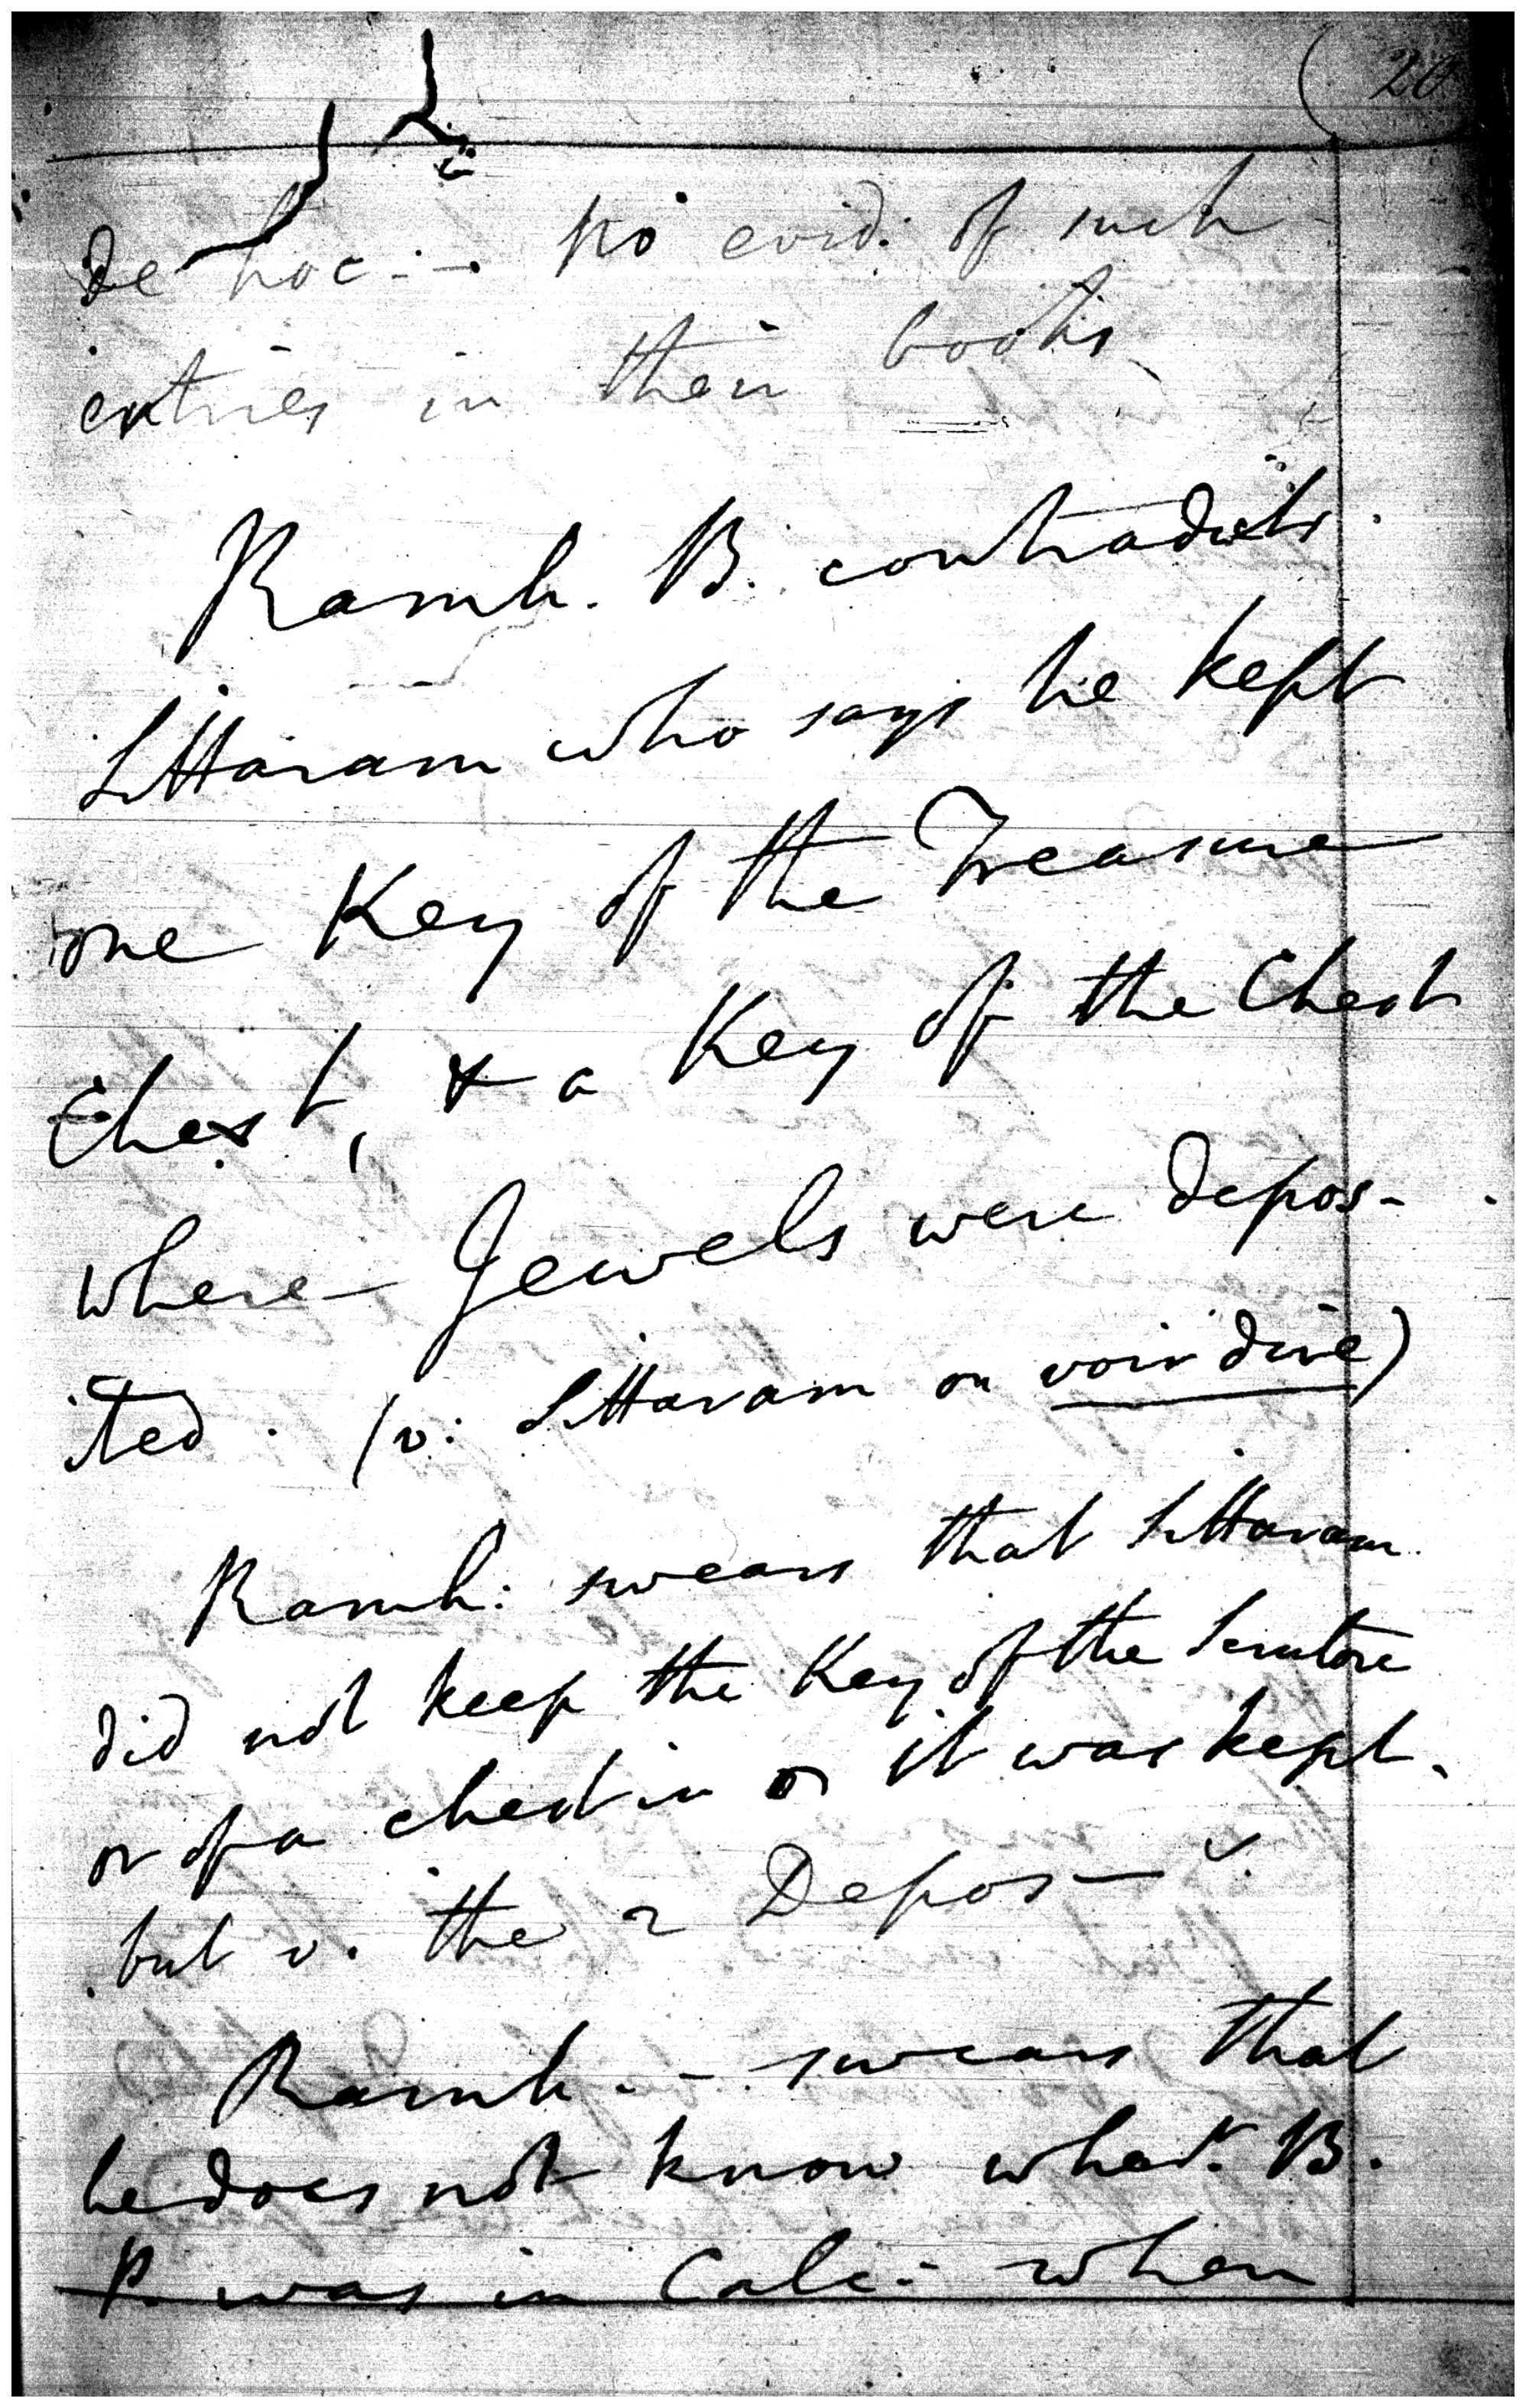 20
de hoc. - No evid: of such
entries in their books
Ramh. B. contradicts
Sittaram who says he kept
one Key of the Treasure
Chest, & a Key of the Chest
where Jewels were depos-
ited. (v: Sittaram on voir dire)
Ramh: swears that Sittaram
did not keep the Key of the Scrutore
or of a chest in it was kept.
but v. the 2 Depos -
Ramh. - swears that
he does not know whe.r B.
P. was in Calc: when